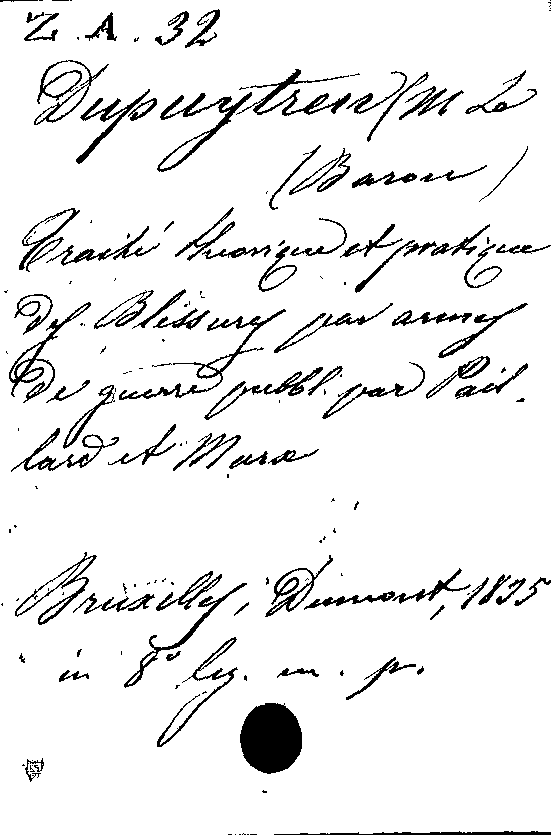 Z. A. 32
Dupuytren (M Le
(Baron)
Traité théorique et pratique
des Blessures par armes
de guerre publl. par Pail-
lard et Marx
Bruxelles, Dumont, 1835
in 8° leg. m. p.